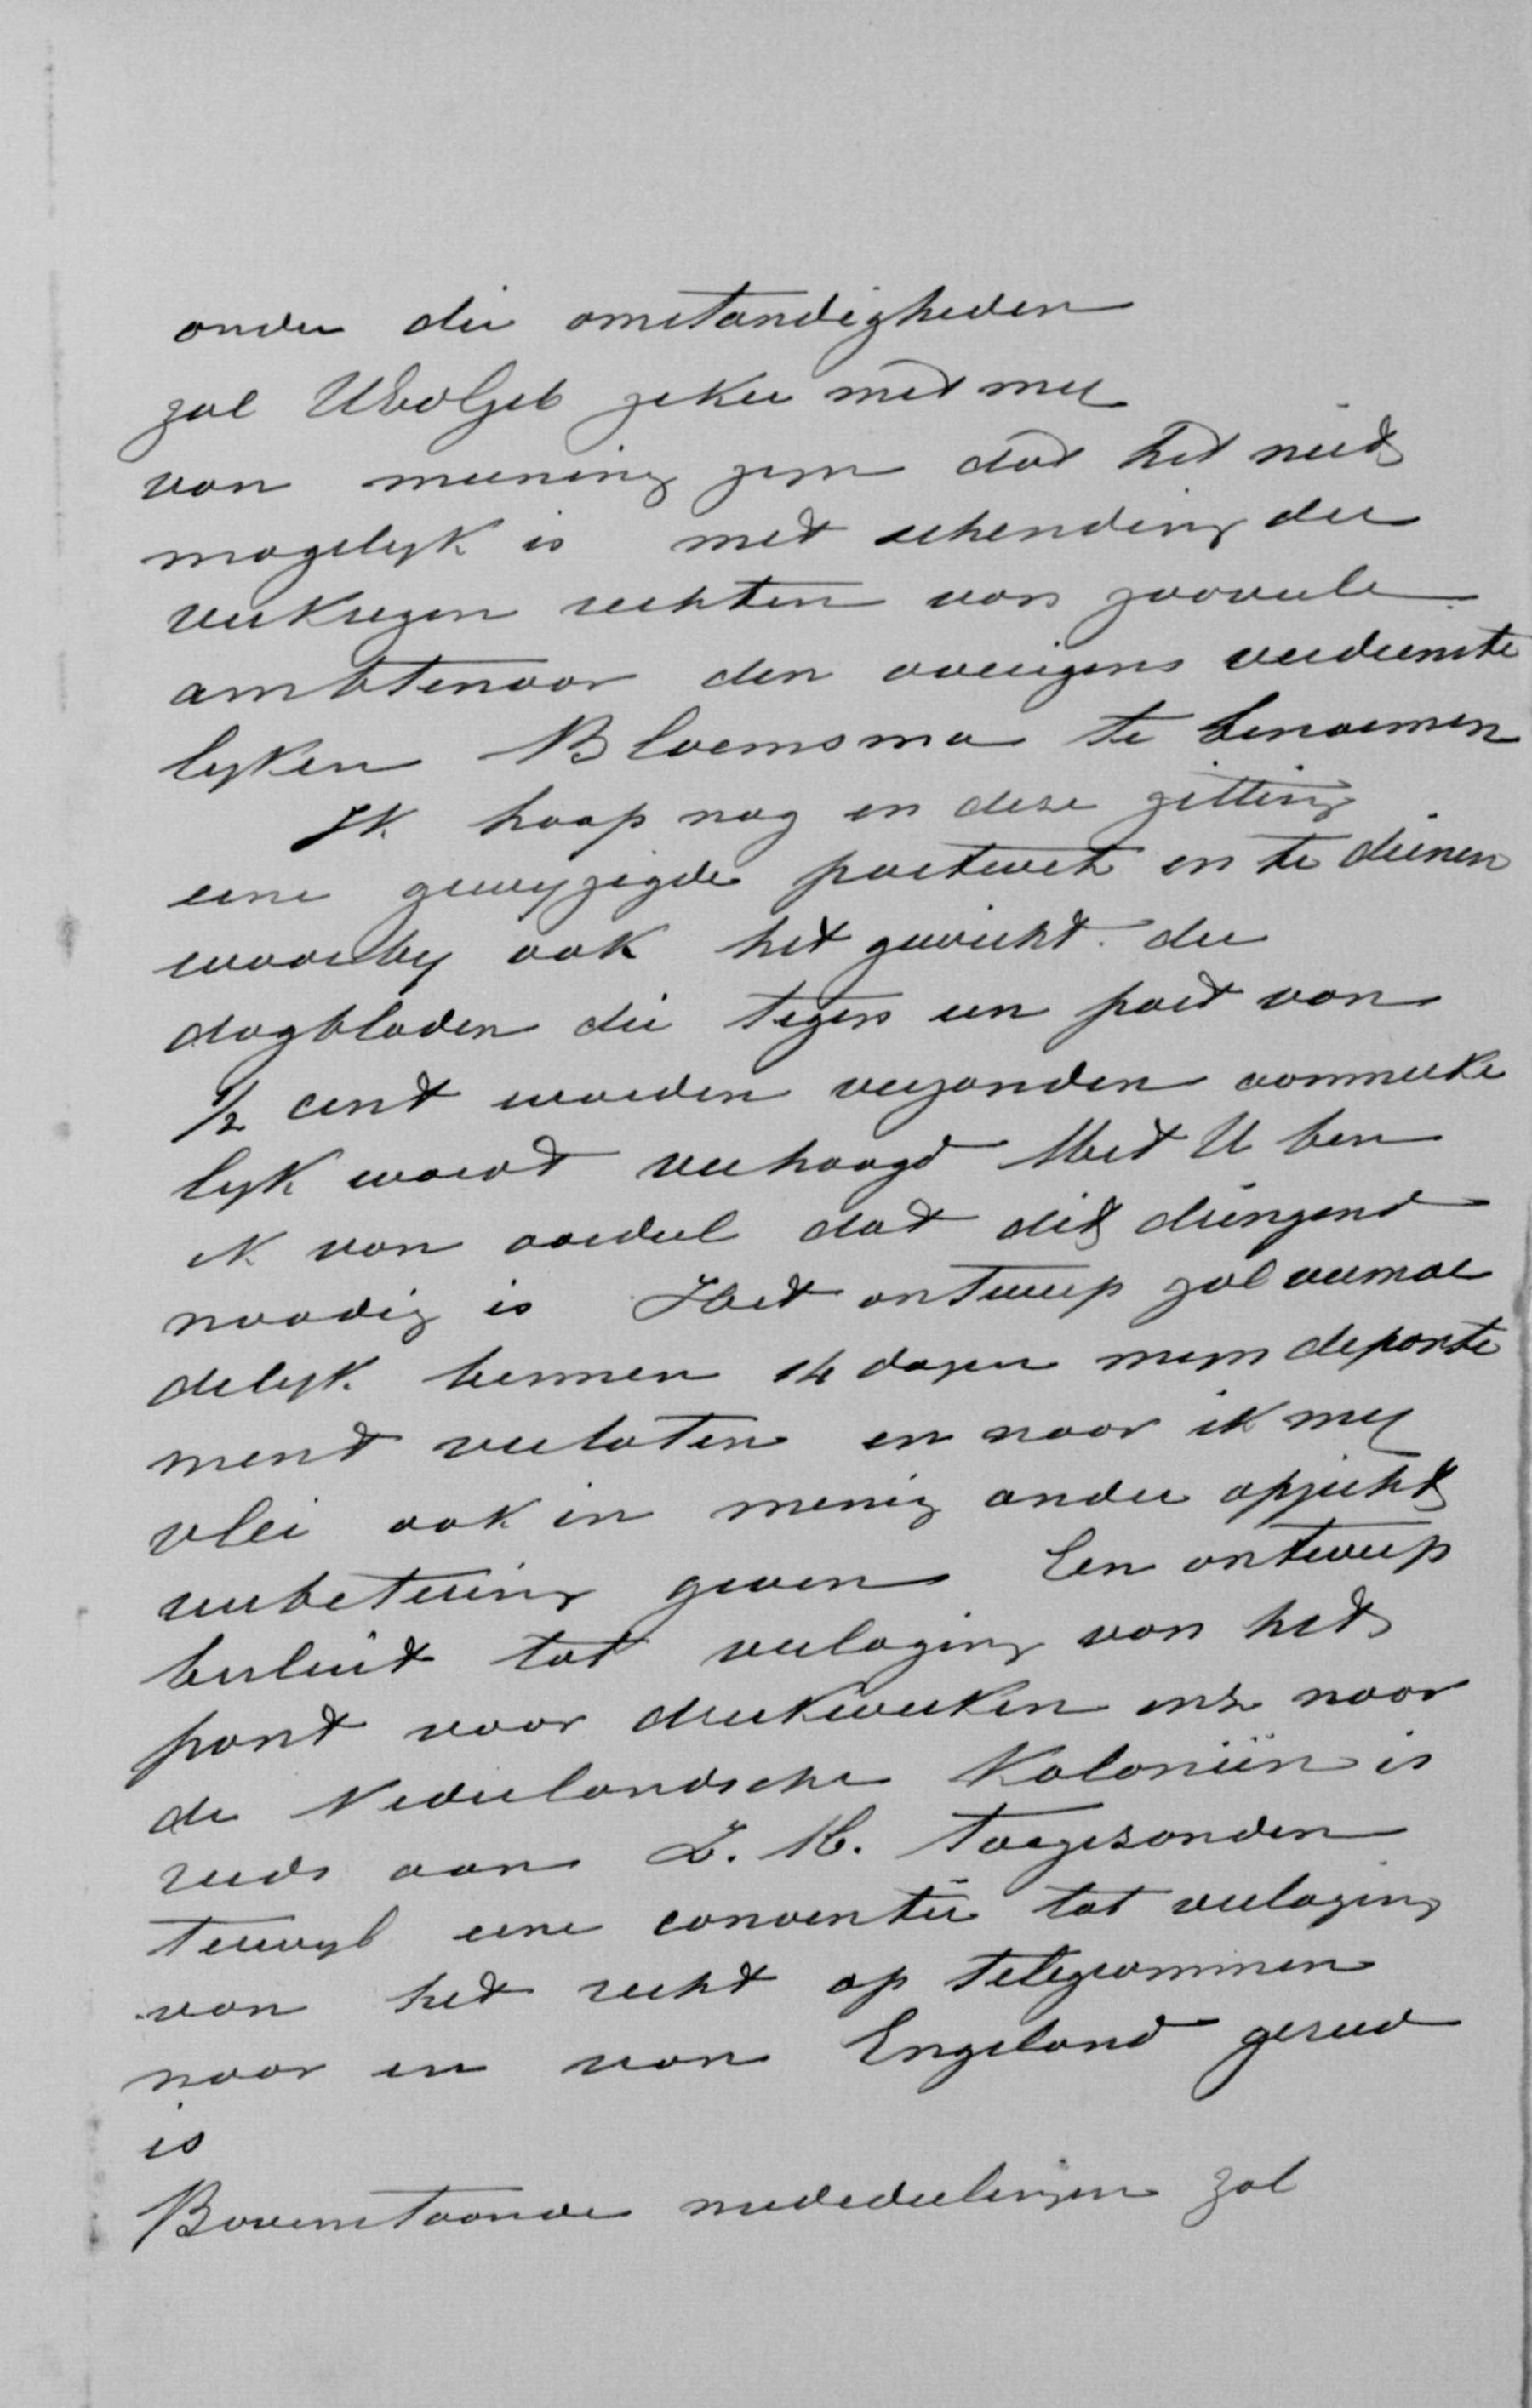 onder die omstandigheden
zal UEdelGeb zeker met my
van meening zyn dat het niet
mogelyk is met schending der
verkregen rechten van zooveele
ambtenaar den overigens verdienste
lyken Bloemsma te benoemen
Ik hoop nog in deze zitting
eene gewyzigde postwet in te dienen
waarby ook het gewicht der
dagbladen die tegen een port van
1/2 cent worden verzonden aanmerke
lyk wordt verhoogd Met U ben
ik van oordeel dat dit dringend
noodig is Het ontwerp zal vermoe
delyk binnen 14 dagen myn departe
ment verlaten en naar ik my
vlei ook in menig ander opzicht
verbetering geven Een ontwerp
besluit tot verlaging van het
port voor drukwerken enz naar
de Nederlandsche Koloniën is
reeds aan Z. M. toegezonden
terwyl eene conventie tot verlaging
van het recht op telegrammen
naar en van Engeland gereed
is
Bovenstaande mededeelingen zal